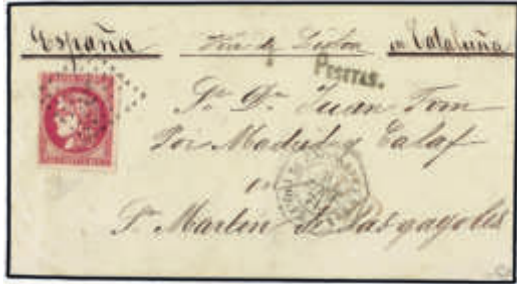 España Via de Lisboa en Cataluña
PESETAS.
Sr. Dn. Juan Tom
Por Madrid y Calaf
en
Sn Martin de Sasgayolas